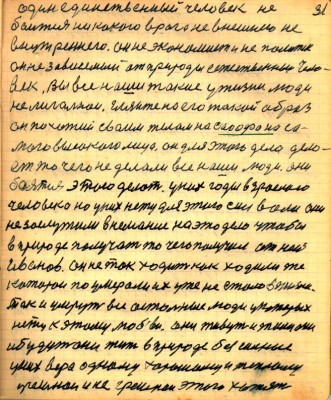 31
один единственный человек не
боится никакого врага не внешнего не
внутреннего. он не экономист и не политик
он не зависимый от природы естественный чело-
век, вы все наши такие у жизни люди
не
он похожий своим телом на
мого высокого лица, он для этого дела дело-
ет то чего не делали все наши люди. они
боятся этого делот. у них годы взрослого
человека но у них нету для этого сил воли они
не заслужили внимание на это дело чтобы
в природе получать то чего получил от неё
Иванов. он не так ходит как ходили те
которые поумерали их уже не стало в жизни.
Так и умрут все остальные люди у которых
нету к этому любви. они живут и
и будут они жить в природе без
у них вера одному хорошему и теплому
и не этого хотят